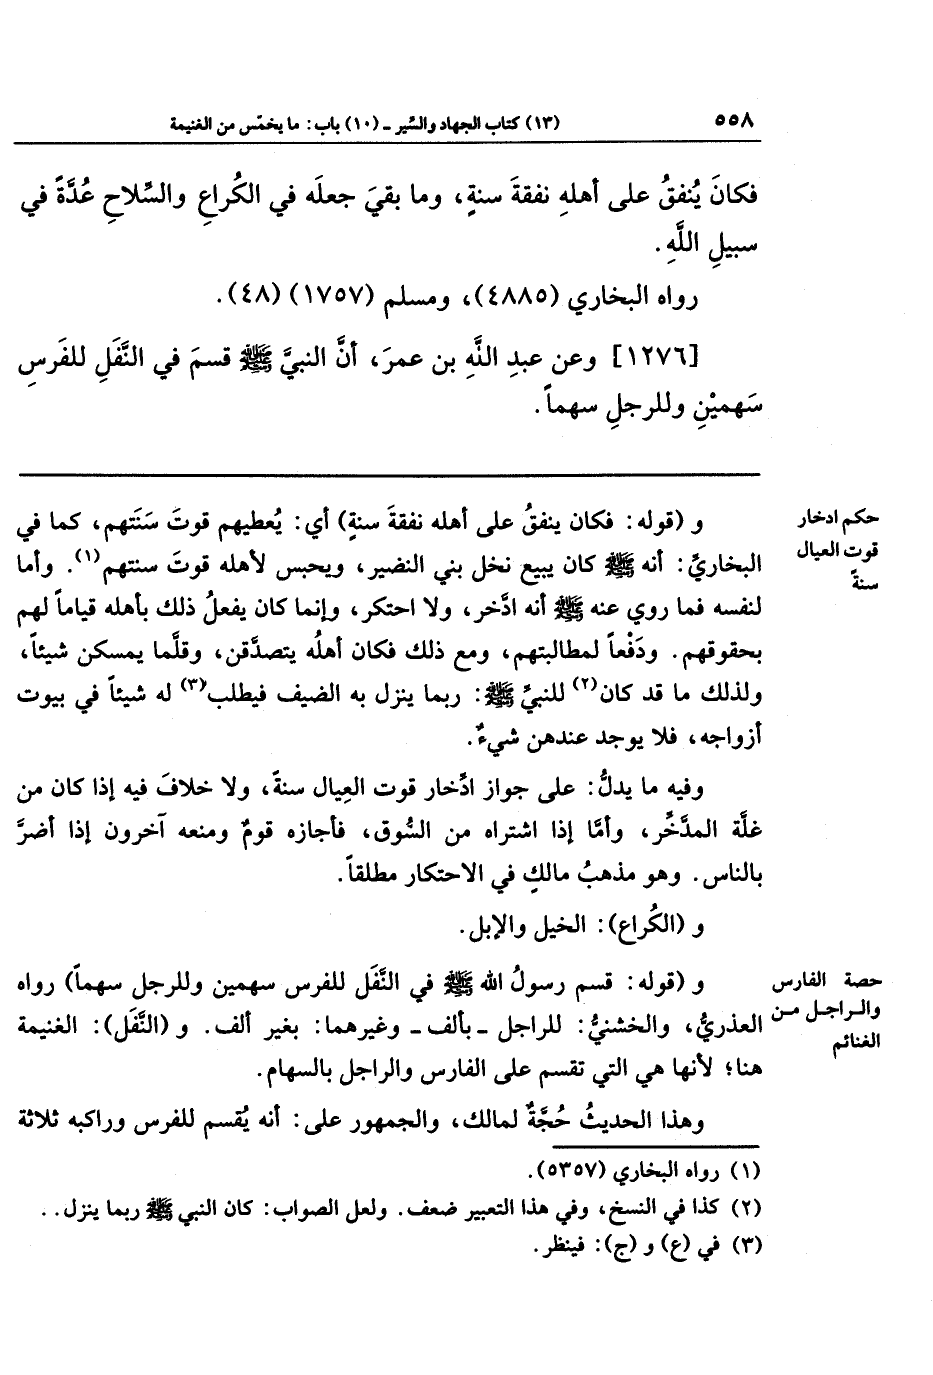 ٥٥٨
(١٣) كتاب الجهاد والسِّير ـ (١٠) باب: ما يخمّس من الغنيمة
فكانَ يُنفقُ على أهلهِ نفقةَ سنةٍ، وما بقيَ جعلَه في الكُراعِ والسِّلاحِ عُدَّةً في
سبيلِ اللَّهِ.
رواه البخاري (٤٨٨٥)، ومسلم (١٧٥٧) (٤٨).
[١٢٧٦] وعن عبدِ اللَّهِ بن عمرَ، أنَّ النبيَّ ﷺ قسمَ في النَّفَلِ للفَرسِ
سَهميْنِ وللرجلِ سهماً.
حكم ادخار
قوت العيال
سنةً
و (قوله: فكان ينفقُ على أهله نفقةَ سنةٍ) أي: يُعطيهم قوتَ سَنَتهم، كما في
البخاريِّ: أنه ﷺ كان يبيع نخل بني النضير، ويحبس لأهله قوتَ سنتهم(١). وأما
لنفسه فما روي عنه ﷺ أنه ادَّخر، ولا احتكر، وإنما كان يفعلُ ذلك بأهله قياماً لهم
بحقوقهم. ودَفْعاً لمطالبتهم، ومع ذلك فكان أهلُه يتصدَّقن، وقلَّما يمسكن شيئاً،
ولذلك ما قد كان(٢) للنبيِّ ﷺ: ربما ينزل به الضيف فيطلب(٣) له شيئاً في بيوت
أزواجه، فلا يوجد عندهن شيءٌ.
وفيه ما يدلُّ: على جواز ادِّخار قوت العِيال سنةً، ولا خلافَ فيه إذا كان من
غلَّة المدَّخِّر، وأمَّا إذا اشتراه من السُّوق، فأجازه قومٌ ومنعه آخرون إذا أضرَّ
بالناس. وهو مذهبُ مالكٍ في الاحتكار مطلقاً.
و (الكُراع): الخيل والإبل.
حصة الفارس
والراجل من
الغنائم
و (قوله: قسم رسولُ الله ﷺ في النَّفَل للفرس سهمين وللرجل سهماً) رواه
العذريُّ، والخشنيُّ: للراجل ـ بألف ـ وغيرهما: بغير ألف. و (النَّفَل): الغنيمة
هنا؛ لأنها هي التي تقسم على الفارس والراجل بالسهام.
وهذا الحديثُ حُجَّةٌ لمالك، والجمهور على: أنه يُقسم للفرس وراكبه ثلاثة
(١) رواه البخاري (٥٣٥٧).
(٢) كذا في النسخ، وفي هذا التعبير ضعف. ولعل الصواب: كان النبي ﷺ ربما ينزل. .
(٣) في (ع) و (ج): فينظر.